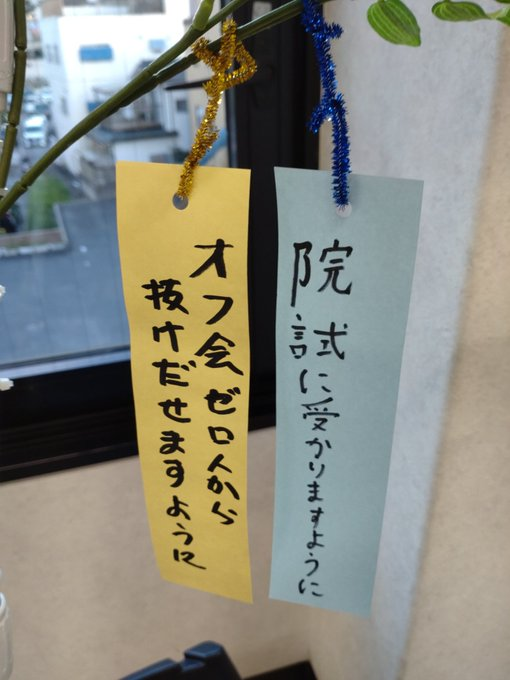 院試に受かりますように
オフ会ゼロ人から
抜けだせますように